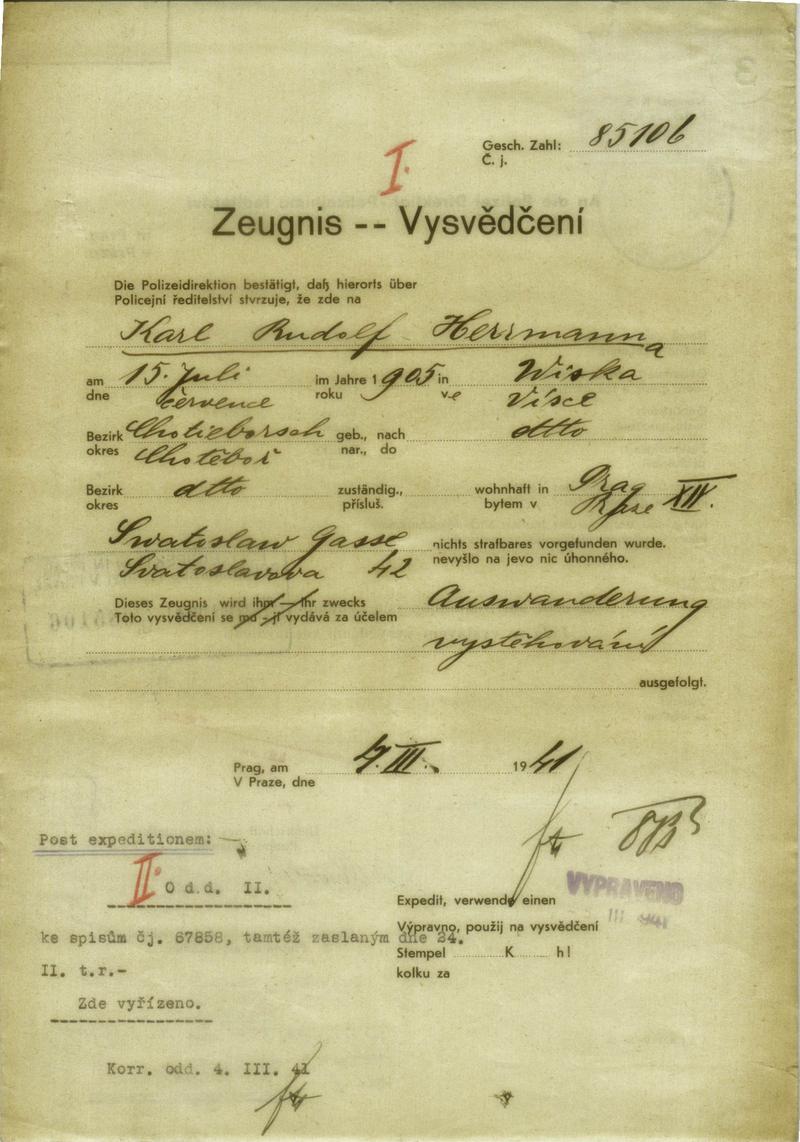 Gesch. Zahl: 85106
Č. j.
I.
Zeugnis -- Vysvědčení
Die Polizeidirektion bestätigt, daß hierorts über
Policejní ředitelství stvrzuje, že zde na
Karl Rudolf Herrmann a
am 15. Juli im Jahre 1905 in Wiska
dne července roku v.e Vísce
Bezirk Chotieborsch geb., nach dtto
okres Chotěboř nar., do
Bezirk dtto zuständig., wohnhaft in Prag XIV.
okres přísluš. bytem v Praze
Swatoslaw Gasse nichts strafbares vorgefunden wurde.
Svatoslavova 42 nevyšlo na jevo nic úhonného.
Dieses Zeugnis wird ihm — ihr zwecks Auswanderung
Toto vysvědčení se mu - jí vydává za účelem vystěhování
ausgefolgt.
Prag, am 4. III. 1941
V Praze, dne
Post expeditionem:
II. O d.d. II.
Expedit, verwende einen
VYPRAVENO
III 1941
Výpravno, použij na vysvědčení
ke spisům čj. 67858, tamtéž zaslaným dne 24.
Stempel K h!
II. t.r.-
kolku za
Zde vyřízeno.
Korr. odd. 4. III. 41